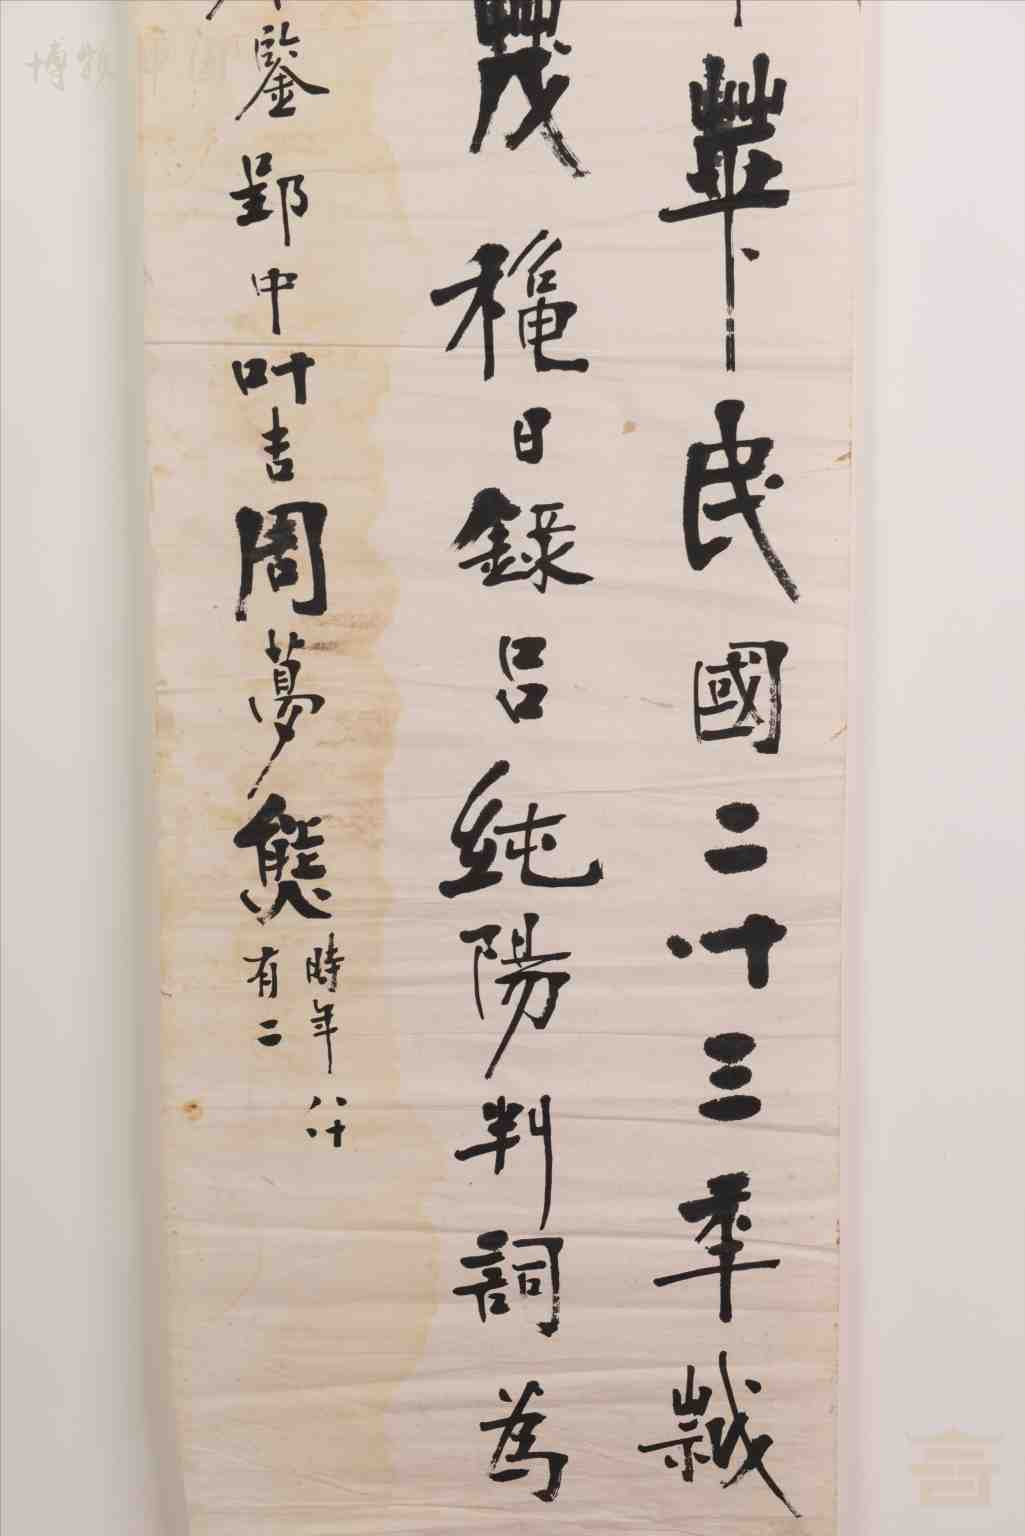 華民國二十三年歲
茂穐日錄呂純陽判詞為
鑒郢中叶吉周夢熊
時年八十
有二
博物中國